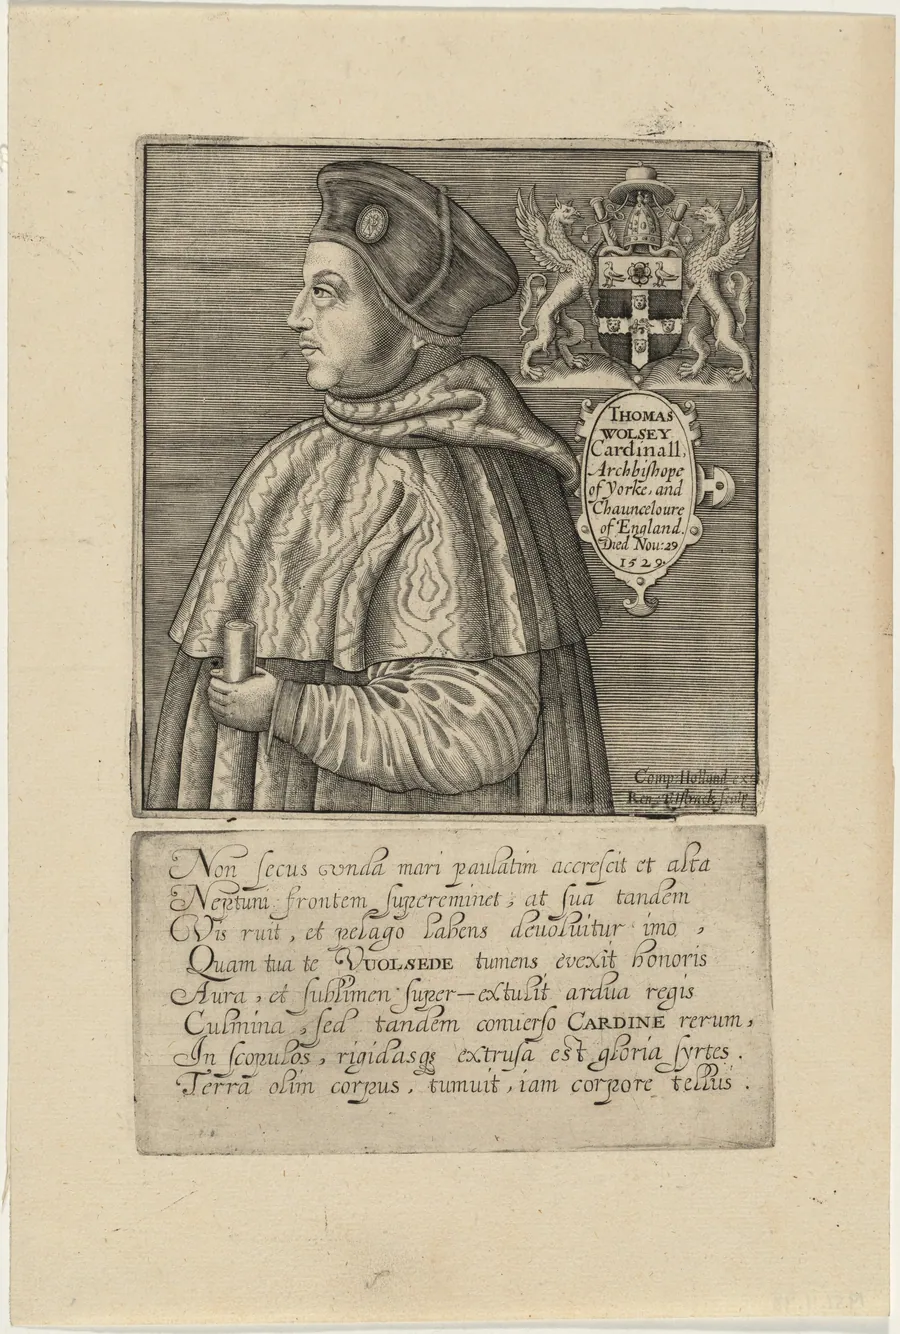 THOMAS
WOLSEY
Cardinall,
Archbiſhope
of Yorke, and
Chaunceloure
of England.
Died Nou: 29
1529.
Comp: Holland ex
Ren: Elſtrack ſculp
Non ſecus vnda mari paulatim accreſcit et alta
Neptuni frontem ſupereminet, at ſua tandem
Vis ruit, et pelago labens deuoluitur imo,
Quam tua te VUOLSEDE tumens evexit honoris
Aura, et ſublimen ſuper-extulit ardua regis
Culmina, ſed tandem conuerſo CARDINE rerum,
In ſcopulos, rigidasqȝ extruſa est gloria ſyrtes.
Terra olim corpus, tumuit, iam corpore tellus.